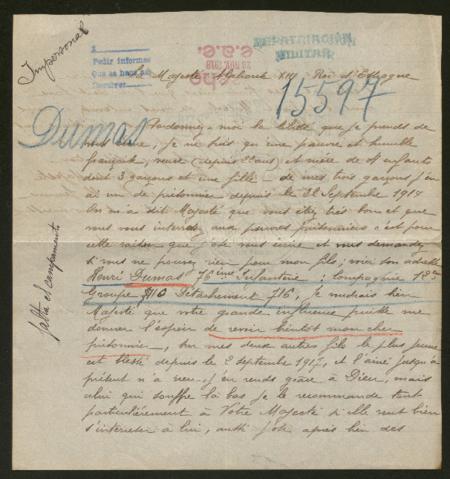 Impersonal
Pedir informes
REPATRIACION
MILITAR
28 NOV. 1918
A Sa Majesté Alphonse XIII Roi d'Espagne
15597
Dumas
Pardonnez-moi la liberté que je prends de
vous écrire, je ne suis qu'une pauvre et humble
française, veuve (depuis 2 ans) et mère de 4 enfants
dont 3 garçons et une fille - de mes trois garçons j'en
ai un de prisonnier depuis le 22 Septembre 1914
On m'a dit Majesté que vous étiez très bon et que
vous vous intéressez aux pauvres prisonniers c'est pour
cette raison que j'ose vous écrire et vous demander
si vous ne pouvez rien pour mon fils; voici son adresse
Henri Dumas 7 Infanterie: Compagnie 18
Groupe Détachement 716, Je voudrais bien
Majesté que votre grande influence puisse me
donner l'espoir de revoir bientôt mon cher
prisonnier, sur mes deux autres fils le plus jeune
est blessé depuis le 2 septembre 1917, et l'ainé jusqu'à
présent n'a rien, j'en rends grâce à Dieu, mais
celui qui souffre là bas je le recommande tout
particulièrement à Votre Majesté si elle veut bien
s'intéresser à lui, aussi j'ose après bien des
falta el campamento